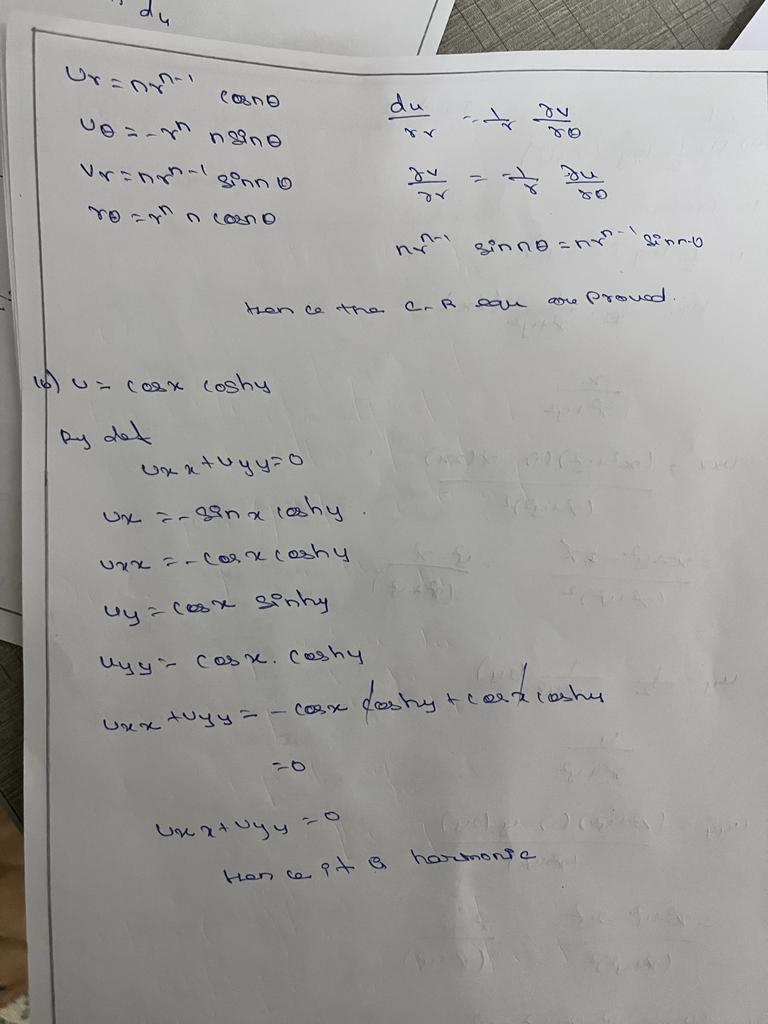 du
Ur = nr^{n-1} cos nθ
Uθ = -r^n n sin nθ
Vr = nr^{n-1} sin n θ
rθ = r^n n cos nθ
du/∂r = 1/r ∂v/∂θ
∂v/∂r = -1/r ∂u/∂θ
nr^{n-1} sin nθ = nr^{n-1} sin nθ
Hence the C-R equ are proved.
u = cos x cosh y
By def
uxx + uyy = 0
ux = - sin x cosh y.
uxx = - cos x cosh y
uy = cos x sinh y
uyy = cos x. cosh y
uxx + uyy = - cos x cosh y + cos x cosh y
= 0
uxx + uyy = 0
Hence it is harmonic